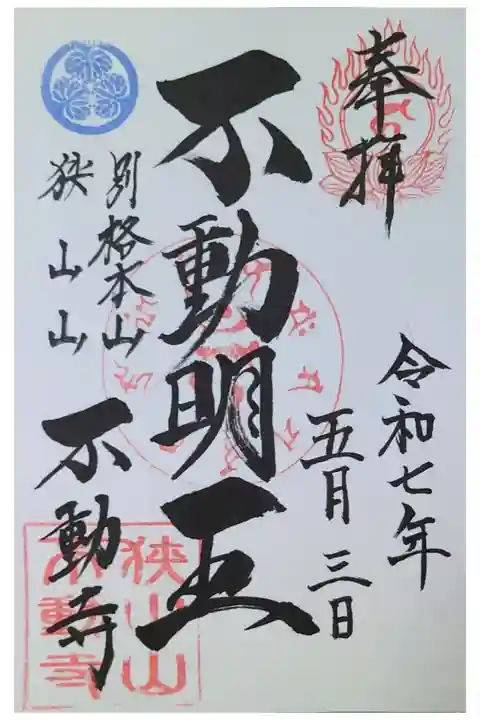 奉拝
令和七年
五月三日
不動明王
別格本山
狭山山
不動寺
狭山山
不動寺